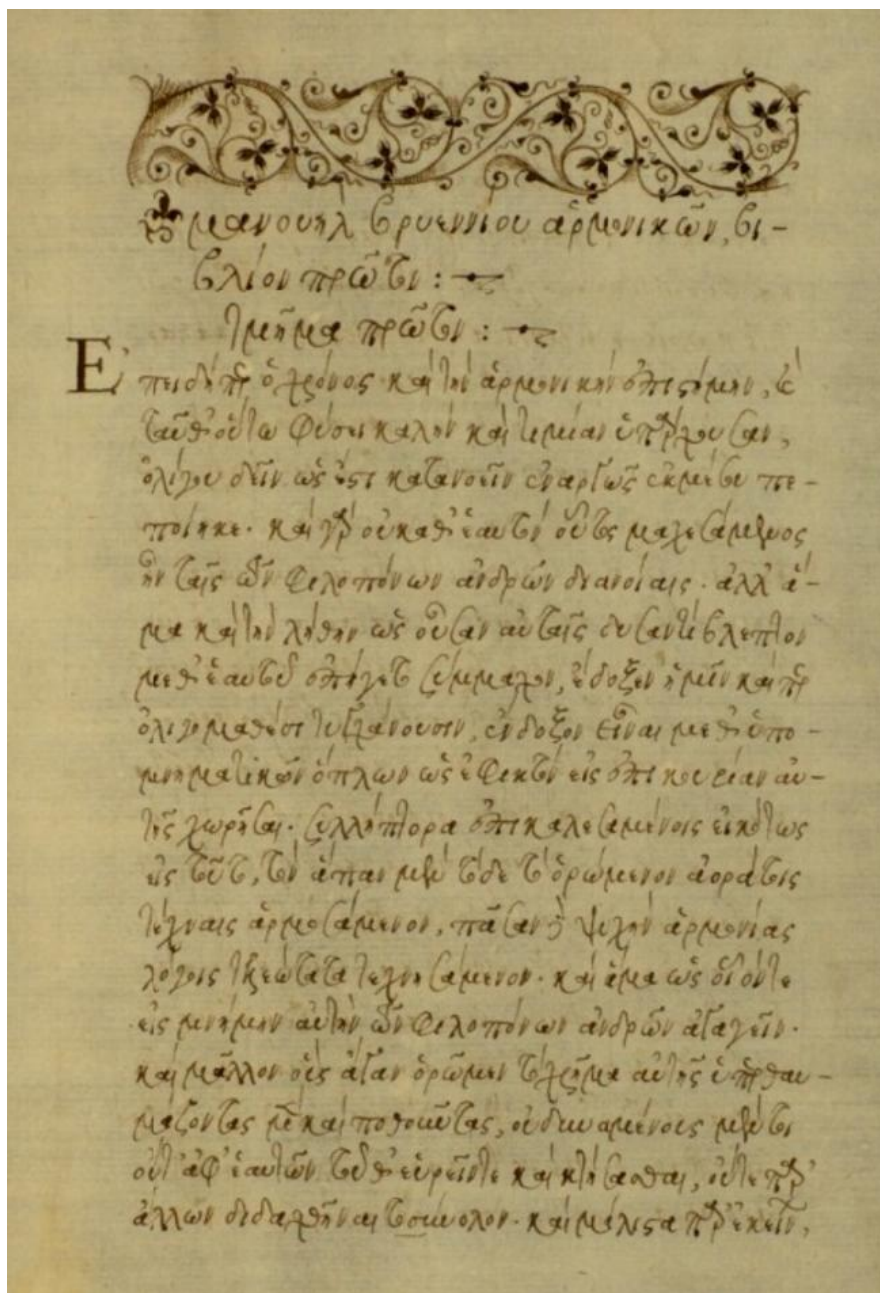 μανουὴλ βρυεννίου ἁρμονικῶν, βι-
βλίον πρῶτον :
τμῆμα πρῶτον :
Ἐπειδήπερ ὁ χρόνος καὶ τὴν ἁρμονικὴν ἐπιστήμην,
ταῦθ' οὕτω φύσει καλὴν καὶ τιμίαν ὑπάρχουσαν,
ὀλίγου δεῖν ὡς ἔστι κατανοεῖν ἐναργῶς ἐκ μέσου πε-
ποίηκε. καὶ γὰρ οὐ καθ' ἑαυτὸν οὗτος μαχεσάμενος
ἐν ταῖς τῶν φιλοπόνων ἀνδρῶν διανοίαις. ἀλλ' ἅ-
μα καὶ τὴν λήθην ὡς οὖσαν αὐταῖς δυσαντίβλεπτον
μεθ' ἑαυτοῦ ἐπήγετο σύμμαχον, ἔδοξεν ἡμῖν καίπερ
ὀλιγομαθέσι τυγχάνουσιν, ἔνδοξον εἶναι μεθ' ὑπο-
μνηματικῶν ὅπλων ὡς ἐφικτὸν εἰς ἐπικουρίαν αὐ-
τῆς χωρῆσαι. συλλήπτορα ἐπικαλεσαμένοις εἰκότως
εἰς τοῦτο, τὸν ἅπαν μὲν τόδε τὸ ὁρώμενον ἀοράτοις
τέχναις ἁρμοσάμενον, πᾶσαν δὲ ψυχὴν ἁρμονίας
λόγοις τεχνησάμενον. καὶ ἅμα ὡς οἷόν τε
εἰς μνήμην αὐτὴν τῶν φιλοπόνων ἀνδρῶν ἀγαγεῖν.
καὶ μᾶλλον οὓς ἄγαν ὁρῶμεν τὸ χρῆμα αὐτῆς ὑπερθαυ-
μάζοντας μὲν καὶ ποθοῦντας, οὐ δυναμένοις μέντοι
οὔτ' ἀφ' ἑαυτῶν τοῦθ' εὑρεῖν τε καὶ κτήσασθαι, οὔτε παρ'
ἄλλων διδαχθῆναι τοσύνολον. καὶ μάλιστα παρ' ἐκείνων,